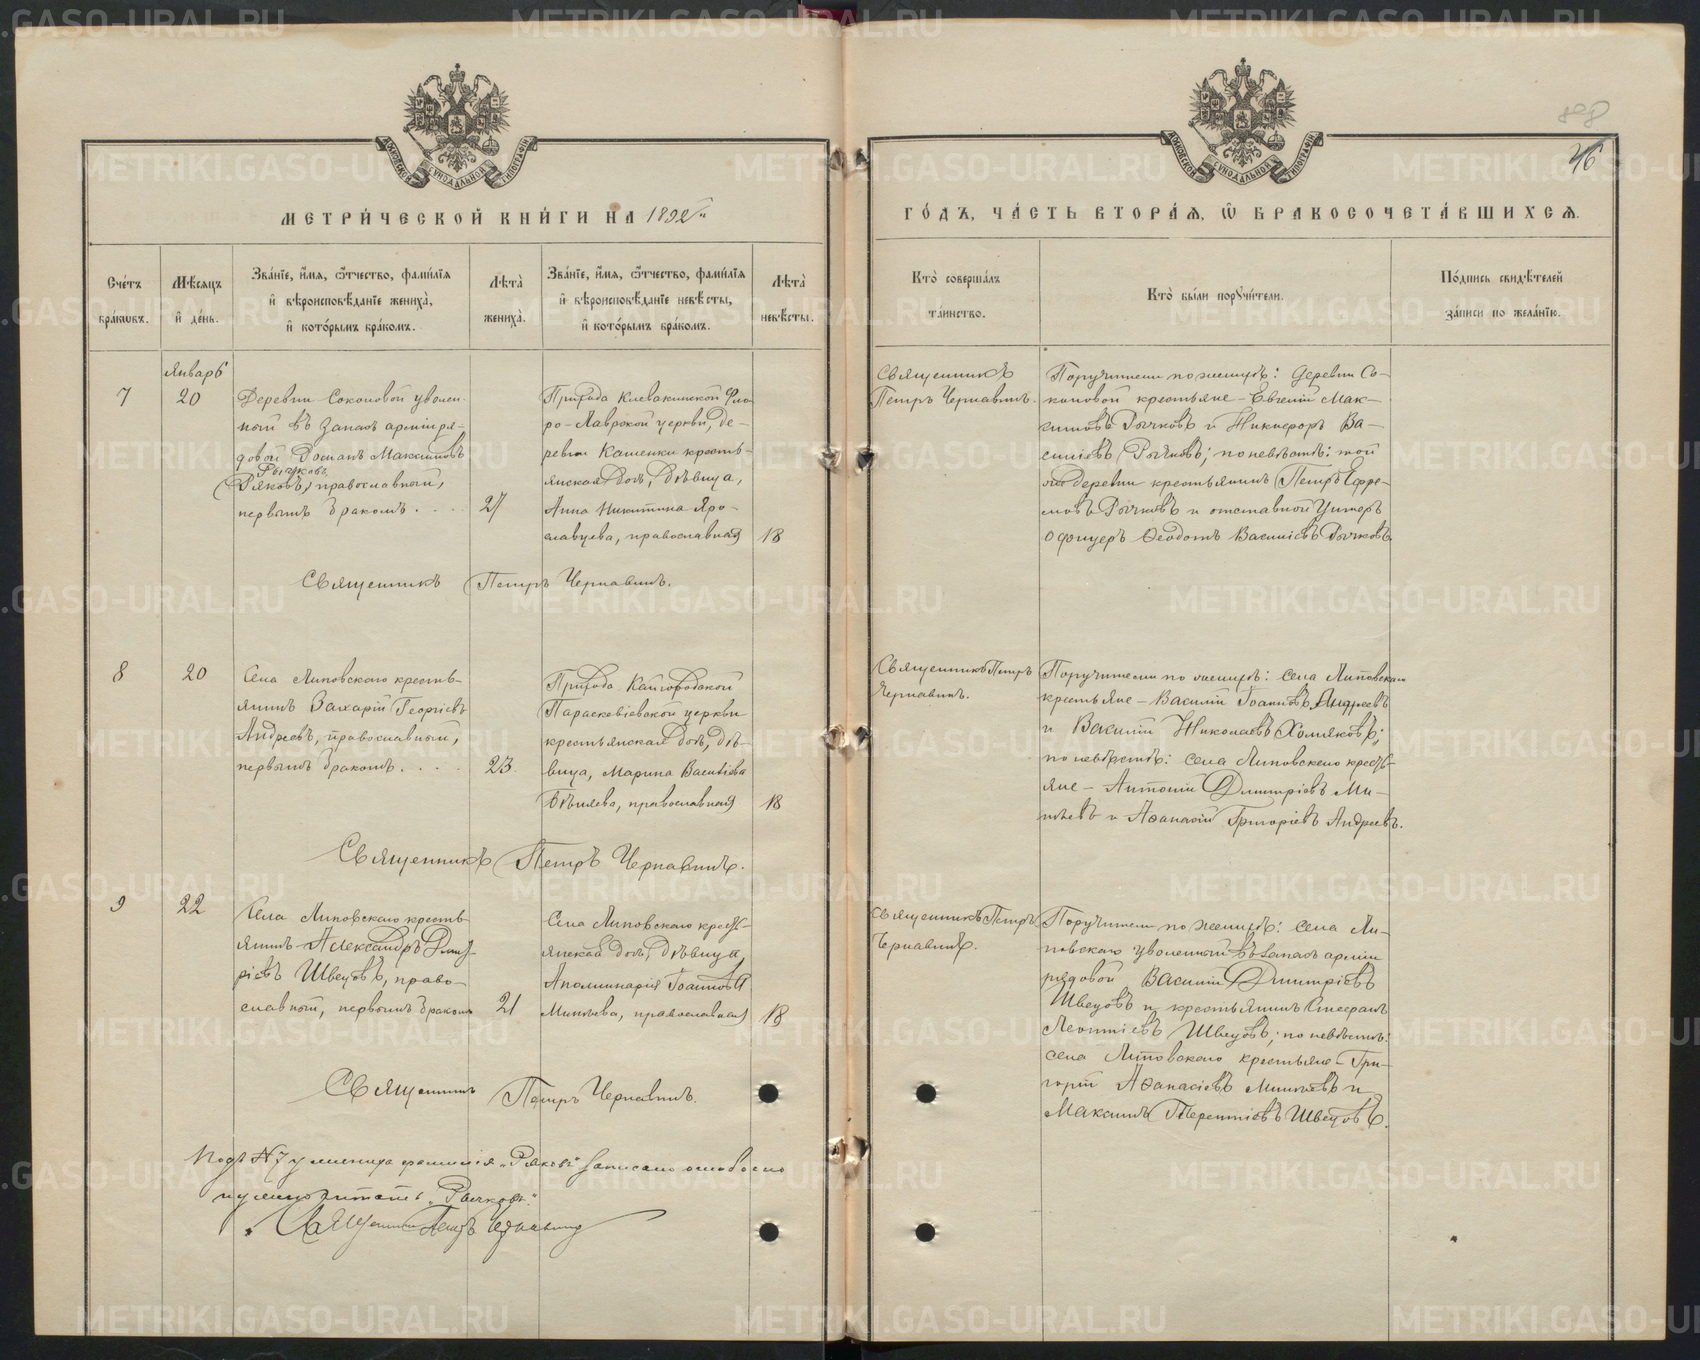 МЕТРИ́ЧЕСКОЙ КНИ́ГИ НА 1892
ГО́ДЪ, ЧА́СТЬ ВТОРА́Я, Ѡ БРАКОСОЧЕТА́ВШИХСЯ.
46
Сче́тъ бра́ковъ.
Мѣ́сяцъ и де́нь.
Зва́нїе, и́мя, ѻ҆́тчество, фами́лїя
и вѣроисповѣ́данїе жениха̀,
и кото́рымъ бра́комъ.
Лѣта̀ жениха̀.
Зва́нїе, и́мя, ѻ҆́тчество, фами́лїя
и вѣроисповѣ́данїе невѣ́сты,
и кото́рымъ бра́комъ.
Лѣта̀ невѣ́сты.
Кто̀ соверша́лъ та́инство.
Кто̀ бы́ли поручи́тели.
По́дпись свидѣ́телей
за́писи по жела́нїю.
7
Январь
20
Деревни Соколовой уволен
ный въ запасъ арміи ря-
довой Романъ Максимовъ
Рычковъ
(Ряковъ), православный,
первымъ бракомъ . . . .
27
Прихода Клевакинской Фло
ро-Лаврской церкви, де-
ревни Кашенки кресть-
янская дочь, дѣвица,
Анна Никитина Яро-
славцева, православная
18
Священникъ Петръ Чернавинъ.
Священникъ
Петръ Чернавинъ.
Поручители по женихѣ: деревни Со-
коловой крестьяне - Евгеній Мак-
симовъ Рычковъ и Никифоръ Ва-
силіевъ Рычковъ; по невѣстѣ: той
же деревни крестьянинъ Петръ Ефре-
мовъ Рычковъ и отставной Унтеръ
офицеръ Ѳеодотъ Василіевъ Рычковъ.
8
20
Села Липовскаго кресть-
янинъ Захарій Георгіевъ
Андреевъ, православный,
первымъ бракомъ . . . .
23.
Прихода Кайгородской
Параскевіевской церкви
крестьянская дочь, дѣ-
вица, Марина Васильева
Бѣляева, православная
18
Священникъ Петръ Чернавинъ.
Священникъ Петръ
Чернавинъ.
Поручители по женихѣ: села Липовскаго
крестьяне - Василій Іоанновъ Андреевъ
и Василій Николаевъ Холмяковъ;
по невѣстѣ: села Липовскаго кресть-
яне - Антоній Димитріевъ Ми-
нѣевъ и Аѳанасій Григоріевъ Андреевъ.
9
22
Села Липовскаго кресть-
янинъ Александръ Димит-
ріевъ Швецовъ, право-
славный, первымъ бракомъ
21
Села Липовскаго кресть-
янская дочь, дѣвица,
Аполлинарія Іоаннова
Минѣева, православная
18
Священникъ Петръ Чернавинъ.
Священникъ Петръ
Чернавинъ.
Поручители по женихѣ: села Ли-
повскаго уволенный въ запасъ арміи
рядовой Василій Димитріевъ
Швецовъ и крестьянинъ Стефанъ
Леонтіевъ Швецовъ; по невѣстѣ:
села Липовскаго крестьяне - Гри-
горій Аѳанасіевъ Минѣевъ и
Максимъ Терентіевъ Швецовъ.
Подъ №7 у жениха фамилія „Ряковъ" записано ошибочно
нужно читать „Рычковъ".
Священникъ Петръ Чернавинъ
METRIKI.GASO-URAL.RU